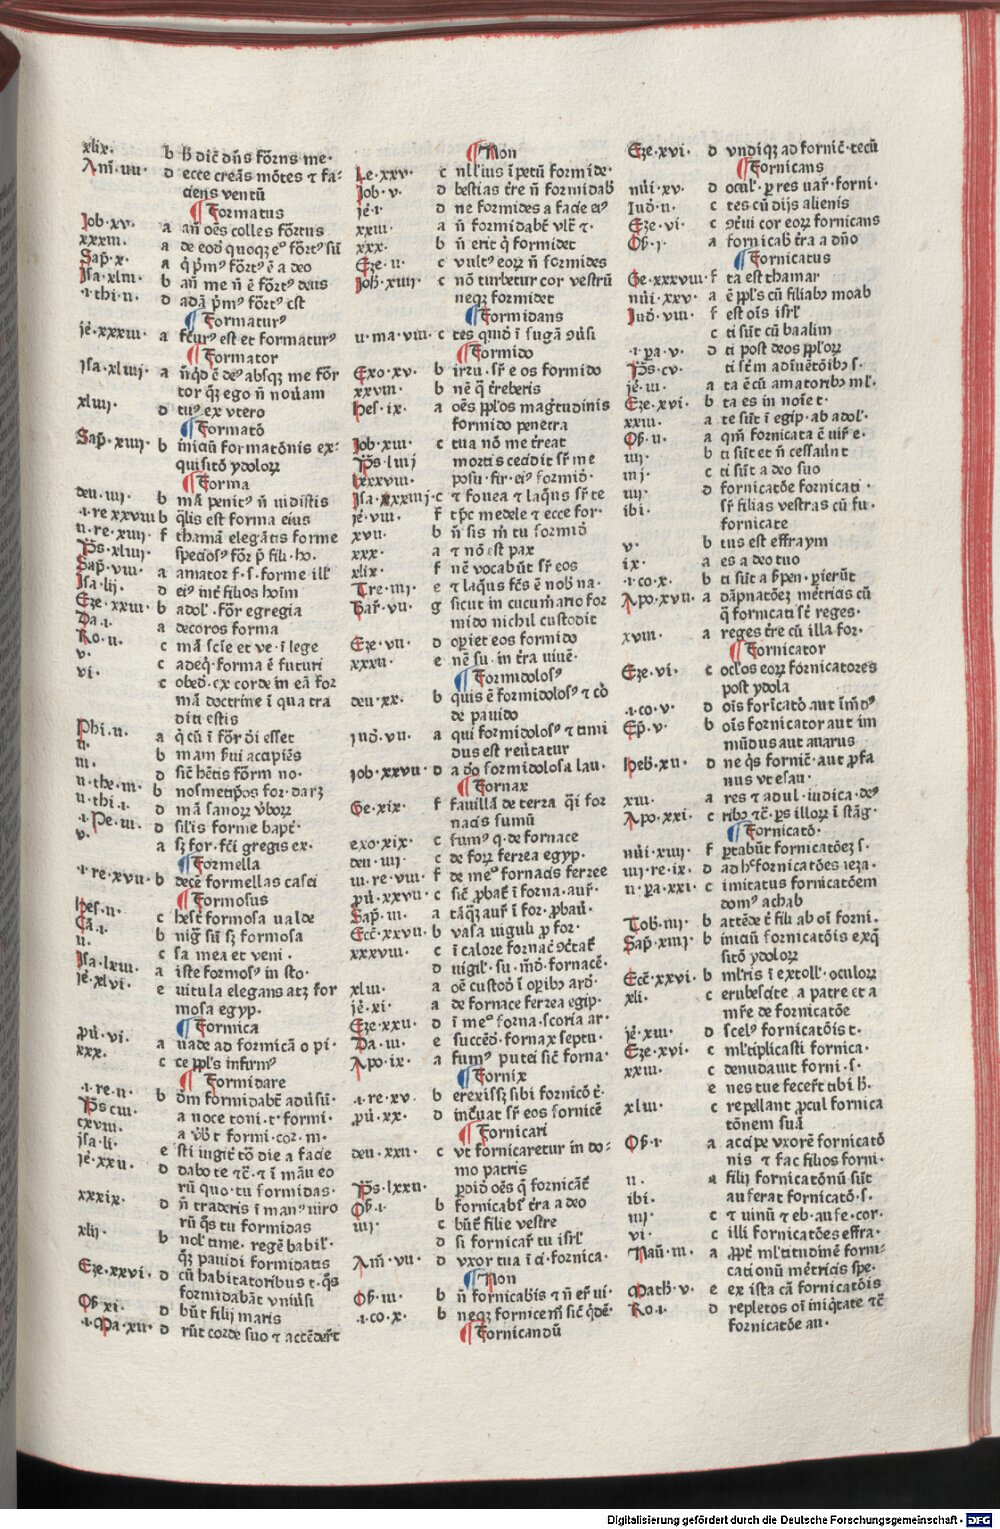 xlix. b h̄ dic̄ dn̄s fōrns me.
Am̄. iiii. d ecce creās mōtes ⁊ fa-
ciens ventū
¶ Formatus
Job. xv. a an̄ oēs colles fōrtus
xxxiii. a de eod̄ quoqꝫ eꝰ fōrtꝰ sū
Sap̄. x. a q̄ pͥmꝰ fōrtꝰ ē a deo
Isa. xliii. b an̄ me n̄ ē fōrtꝰ deus
.i. thi. ii. d adā pͥmꝰ fōrtꝰ est
¶ Formaturꝰ
je. xxxiii. a fc̄urꝰ est et formaturꝰ
¶ Formator
Isa. xliiij. a n̄qd̄ ē deꝰ absqꝫ me fōr
tor qꝫ ego n̄ nouam
xliij. d tuꝰ ex vtero
¶ Formatō
Sap̄. xiiij. b iniciū formatōnis ex-
quisitō ydoloꝝ
¶ Forma
deu. iiij. b mā penitꝰ n̄ uidistis
.i. re xxviii b q̄lis est forma eius
ii. re. xiij. f thamā elegātis forme
Ps̄. xliiij. speciosꝰ fōr p̄ fili. ho.
Sap̄. viii. a amator f. s. forme illꝰ
Isa. lij. d eiꝰ int̄ filios hoīm
Eze. xxiii. b adol̄. fōr egregia
Da. i. a decoros forma
Ro. ii. c mā scīe et ve. i lege
v. c adeq̄. forma ē futuri
vi. c obed̄. ex corde in eā for
mā doctrine i qua tra
diti estis
Phi. ii. a q̄ cū i fōr di esset
ii. b mam s̄ui accipiēs
iii. d sic̄ hētis fōrm no.
ii. the. iii. b nosmetip̄os for. darꝫ
ii. thi. i. d mā sanoꝝ v̄boꝝ
.i. Pe. iii. d sil̄is forme bapt̄.
v. a sꝫ for. fc̄i gregis ex.
¶ Formella
.i. re. xvii. b decē formellas casei
¶ Formosus
Hes. ii. c hest̄ formosa ualde
Cā. i. b niḡ sū sꝫ formosa
ii. c sa mea et veni.
Isa. lxiii. a iste formosꝰ in sto.
je. xlvi. e uitula elegans atꝫ for
mosa egyp.
¶ Formica
pū. vi. a uade ad formicā o pi.
xxx. c ce ppl̄s infirmꝰ
¶ Formidare
.i. re. ii. b dm̄ formidabt̄ adūsū.
Ps̄ ciii. a uoce toni. t. formi.
cxviii. a v̄b t formi. cor. m.
jsa. li. e sti iugit̄ tō die a facie
je. xxii. d dabo te ⁊c̄. ⁊ i mān eo
rū quo. tu formidas.
xxxix. d n̄ traderis i manꝰ uiro
rū q̄s tu formidas
xlij. b nol̄ time. regē babil̄.
qꝫ pauidi formidatis
Eze. xxvi. d cū habitatoribus t. q̄s
formidabāt vniūsi
Oꝫ xi. d būt filij maris
.i. Ma. xii. d rūt corde suo ⁊ accēdert̄
¶ Non
Le. xxv. c nll̄ius ipetū formide.
Job. v. d bestias t̄re n̄ formidab̄
je. i. d ne formides a facie eiꝰ
xxiii. a n̄ formidabt̄ vlt̄ ⁊.
xxx. b n̄ erit q̄ formidet
Eze. ii. c vultꝰ eoꝝ n̄ formides
Joh̄. xiiij. c nō turbetur cor vestrū
neqꝫ formidet
¶ Formidans
ii. ma. viii. c tes quid̄ i fugā ꝯūsi
¶ Formido
Exo. xv. b irru. sr̄ e os formido
xxviii. b nē q̄ t̄reberis
Hes. ix. a oēs ppl̄os maḡtudinis
formido penetra
Job. xiii. c tua nō me t̄reat
Ps̄. liiij mortis cecidit sr̄ me
lxxxviii. posu. fir. eiꝰ formid̄.
Isa. xxxiiij. c ⁊ fouea ⁊ laq̄us sr̄ te
je. viii. f tp̄c medele ⁊ ecce for.
xvii. b n̄ sis m̄ tu formid̄
xxx. a ⁊ nō est pax
xlix. f nē vocabūt sr̄ eos
Tre. iij. e ⁊ laq̄us fc̄s ē nob̄ na.
Bar̄. vii. g sicut in cucum̄ario for
mido nichil custodit
Eze. vii. d op̄iet eos formido
xxxii. e nē su. in t̄ra uiuē.
¶ Formidolosꝰ
deu. xx. b quis ē formidolosꝰ ⁊ cō
de pauido
jud̄. vii. a qui formidolosꝰ ⁊ timi
dus est reūtatur
job. xxvii. d a do formidolosa lau.
¶ Fornax
Ge. xix. f fauillā de terra q̄i for
nacis fumū
exo. xix. c fumꝰ q. de fornace
deu. iiij. c de forn ferrea egyp.
iii. re. viii. f de meꝰ fornacis ferree
pū. xxvii. c sic̄ pbat̄ i forna. aur̄.
Sap̄. iii. a tāqꝫ aur̄ i for. pbaū.
Ecc̄. xxvii. b vasa uiguli p for.
xxxviii. c i calore fornac̄ ꝯc̄tat̄
d uigil̄. su. mō. fornacē.
xliii. a oē custod̄ i opib̄ ard̄.
je. xi. a de fornace ferrea egip.
Eze. xxii. d i meꝰ forna. scoria ar.
Da. iii. e succēd̄. fornax septu.
Apo. ix. a fumꝰ putei sic̄ forna.
¶ Fornix
.i. re. xv. b erexissꝫ sibi fornicō t̄.
pū. xx. d inc̄uat sr̄ eos fornicē
¶ Fornicari
deu. xxii. c vt fornicaretur in do-
mo patris
Ps̄. lxxii. pdid̄ oēs q̄ fornicāt̄
Oꝫ. i. b fornicabs̄ t̄ra a deo
iiij. c būt̄ filie vestre
d si fornicar̄ tu isrl̄
Am̄. vii. d vxor tua i ci. fornica.
¶ Non
Oꝫ. iii. b n̄ fornicabis ⁊ n̄ er̄ ui.
.i. co. x. b neqꝫ fornicem̄ sic̄ q̄dē.
¶ Fornicandū
Eze. xvi. d vndiqꝫ ad fornic̄. tecū
¶ Fornicans
nūi. xv. d ocul̄. p res uar̄. forni.
Iud̄. ii. c tes cū dijs alienis
Eze. vi. c ꝯt̄ui cor eoꝝ fornicans
Oꝫ. j. a fornicab̄ t̄ra a dn̄o
¶ Fornicatus
Ge. xxxviii. f ta est thamar
nūi. xxv. a ē ppl̄s cū filiabꝫ moab
Iud̄. viii. f est oīs isrl̄
c ti sūt cū baalim
.i. pa. v. d ti post deos ppl̄oꝝ
Ps̄. cv. ti sē̄m adiūētōibꝫ s.
je. iii. a ta ē cū amatoribꝫ ml̄.
Eze. xvi. b ta es in noīe t.
xxiii. a te sūt i egip. ab adol̄.
Oꝫ. ii. a qm̄ fornicata ē uir̄ e.
iiij. b ti sūt et n̄ cessaūnt
iiij. c ti sūt a deo suo
iiij. d fornicatōe fornicati.
ibi. sr̄ filias vestras cū fu.
fornicate
v. b tus est effraym
ix. a es a deo tuo
.i. co. x. b ti sūt a b̄pen. pierūt
Apo. xvii. a dāpnatōeꝫ met̄ricis cū
q̄ fornicati st̄ reges.
xviii. a reges t̄re cū illa for.
¶ Fornicator
Eze. vi. c ocl̄os eoꝝ fornicatores
post ydola
.i. co. v. d oīs forīcatō aut īmdꝰ
Ep̄. v. b oīs fornicator aut im
mūdus aut auarus
Heb̄. xii. d ne q̄s fornic̄. aut pfa
nus vt esau.
xiii. a res ⁊ adul. iudica. deꝰ
Apo. xxi. c ribꝫ ⁊c̄. ps illoꝝ i stāg.
¶ Fornicatō.
nūi. xiiij. f ptabūt fornicatōeꝫ s.
iiij. re. ix. d ad hᶜ fornicatōes ieza.
ii. pa. xxi. c imitatus fornicatōem
domꝰ achab
Tob. iiij. b attēde t̄ fili ab oī forni.
Sap̄. xiiij. b iniciū fornicatōis exq̄
sitō ydoloꝝ
Ecc̄. xxvi. b ml̄ris i extoll̄. oculoꝝ
xli. c erubescite a patre et a
mr̄e de fornicatōe
je. xiii. d scelꝰ fornicatōis t.
Eze. xvi. c ml̄tiplicasti fornica.
xxiii. c denudauit forni. s.
e nes tue fecer̄t tibi h̄.
xliii. c repellant pcul fornica
tōnem suā
Oꝫ. i a accipe vxorē fornicatō
nis ⁊ fac filios forni.
ii. a filij fornicatōnū sūt
ibi. auferat fornicatō. s.
iiij. c ⁊ uinū ⁊ eb. aufe. cor.
vi. c illi fornicatōes effra.
Naū. iii. a ppt̄ ml̄titudinē forni-
cationū met̄ricis spe.
Math̄. v. e ex ista cā fornicatōis
Ro. i. d repletos oī iniq̄tate ⁊c̄
fornicatōe au.
Digitalisierung gefördert durch die Deutsche Forschungsgemeinschaft - DFG